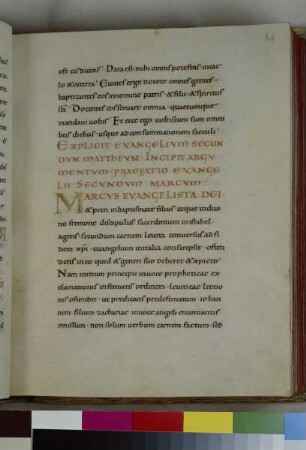 est eis dicens. Data est mihi omnis potestas in cae
lo & in terra. Euntes ergo docete omnes gentes.
baptizantes eos in nomine patris & filii & spiritus
sci. Docentes eos seruare omnia quaecumque
mandaui uobis. Et ecce ego uobiscum sum omni
bus diebus. usque ad consummationem saeculi.
EXPLICIT EVANGELIVM SECVN
DVM MATTHEVM. INCIPIT ARGV
MENTVM. PRAEFATIO EVANGE
LII SECVNDVM MARCVM.
MARCVS EVANGELISTA DEI
& petri in baptismate filius atque in diui
no sermone discipulus sacerdotium in israhel
agens. secundum carnem leuita. conuersus ad fi
dem xpi. euangelium in italia conscripsit. osten
dens in eo quid & generi suo deberet & xpo
Nam initium principii in uoce propheticae ex
clamationis instituens ordinem leuiticae lectio
nis ostendit. ut praedicans praedestinatum iohan
nem filium zachariae in uoce angeli enuntiantis
emissum. non solum uerbum carnem factum. sed